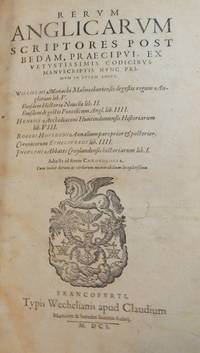 RERVM
ANGLICARVM
SCRIPTORES POST
BEDAM, PRAECIPVI, EX
VETVSTISSIMIS CODICIBVS
MANVSCRIPTIS NVNC PRI-
MVM IN LVCEM EDITI.
WILLIELMI Monachi Malmesburiensis de gestis regum An-
glorum lib. V.
Eiusdem Historiæ Nouellæ lib. II.
Eiusdem de gestis Pontificum Angl. lib. IIII.
HENRICI Archidiaconi Huntindoniensis Historiarum
lib. VIII.
ROGERI HOVEDENI Annalium pars prior & posterior.
Chronicorum ETHELWERDI lib. IIII.
INGVLPHI Abbatis Croylandensis historiarum lib. I.
Adiecta ad finem CHRONOLOGIA.
FRANCOFVRTI,
Typis Wechelianis apud Claudium
M. DCI.